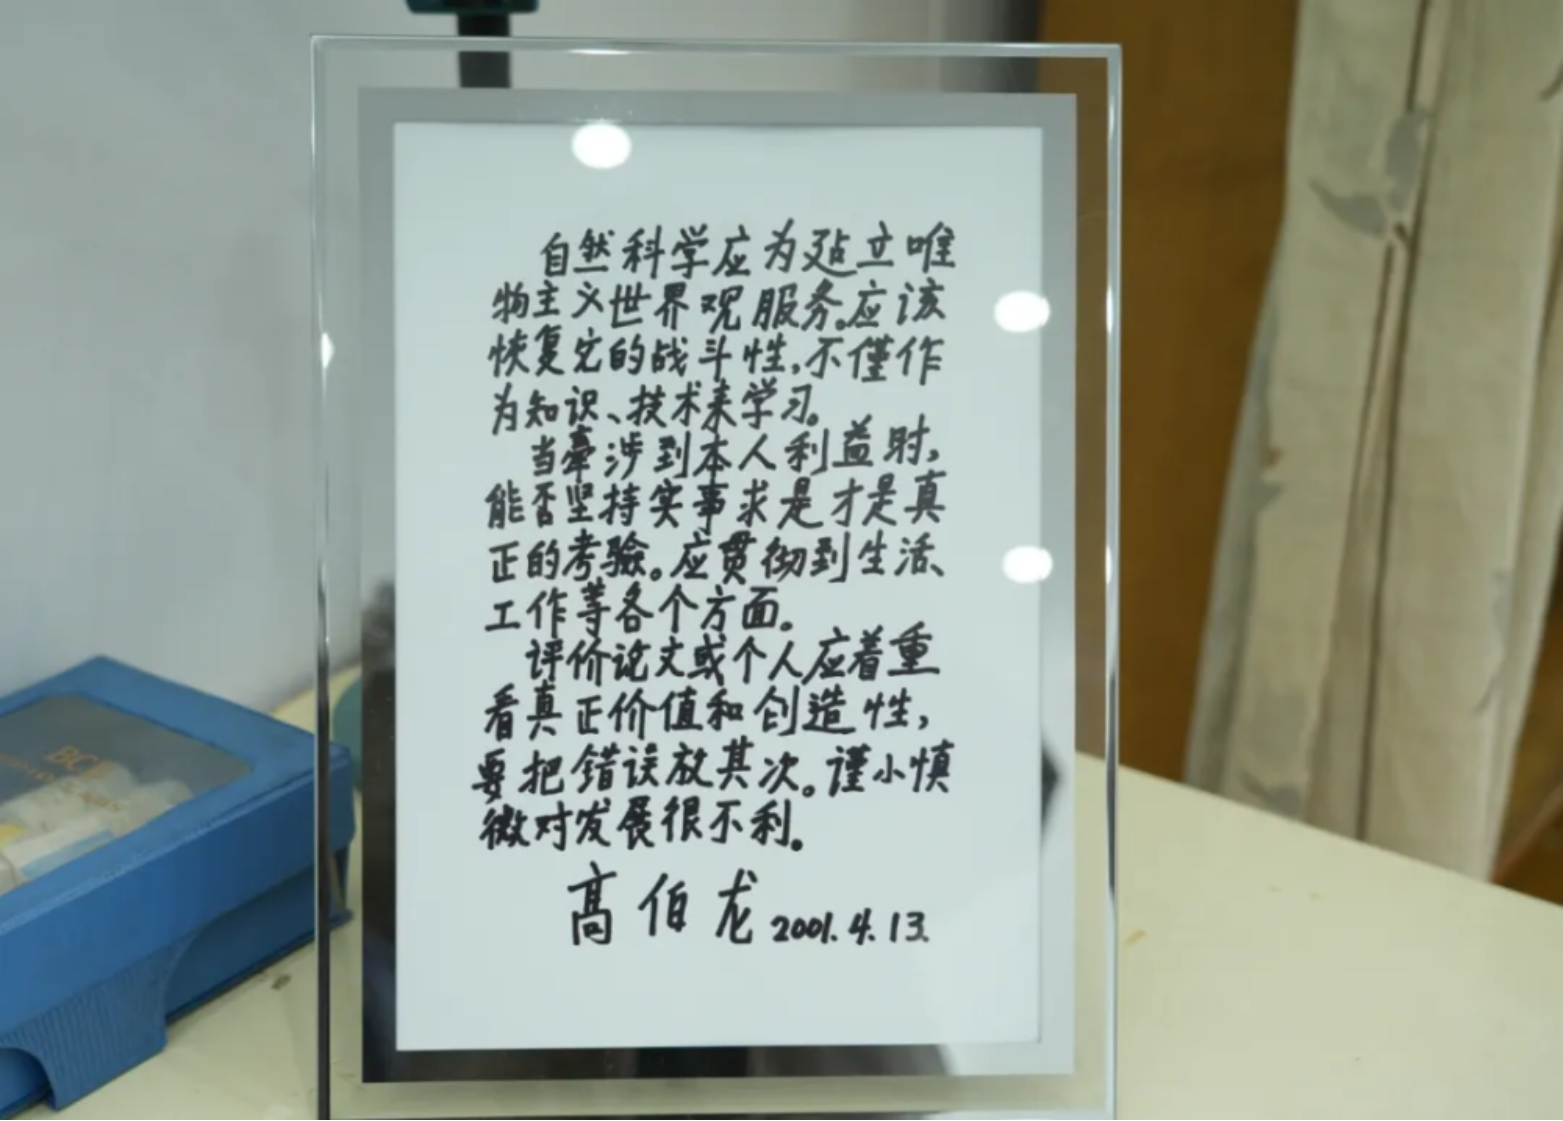 自然科学应为建立唯
物主义世界观服务。应该
恢复它的战斗性，不仅作
为知识、技术来学习。
当牵涉到本人利益时，
能否坚持实事求是才是真
正的考验。应贯彻到生活、
工作等各个方面。
评价论文或个人应着重
看真正价值和创造性，
要把错误放其次。谨小慎
微对发展很不利。
高伯龙 2001.4.13.